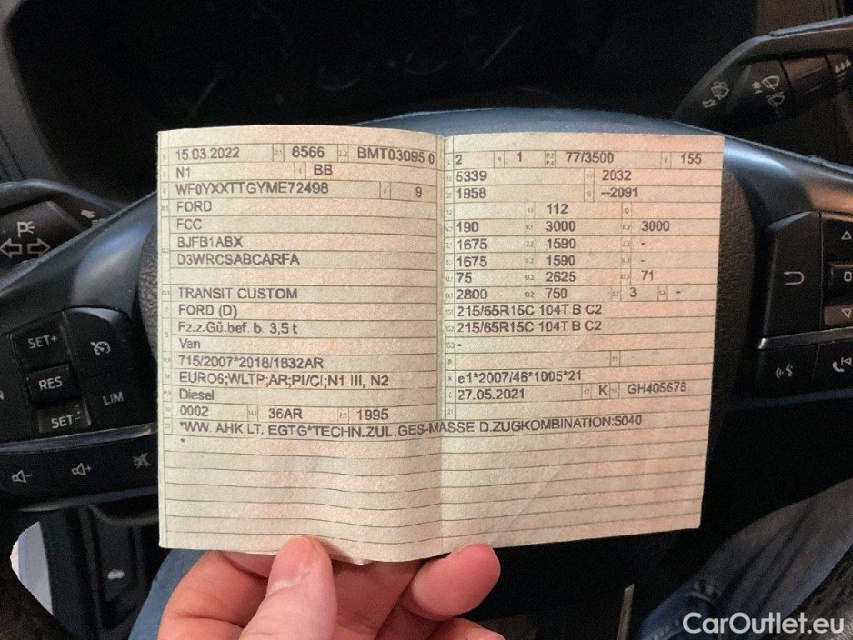 15.03.2022 8566 BMT030850
N1 BB
WF0YXXTTGYME72498 9
FORD
FCC
BJFB1ABX
D3WRCSABCARFA
TRANSIT CUSTOM
FORD (D)
Fz.z.Gü.bef. b. 3,5 t
Van
715/2007*2018/1832AR
EURO6;WLTP;AR;PI/CI;N1 III, N2
Diesel
0002 36AR 1995
*WW. AHK LT. EGTG*TECHN.ZUL.GES-MASSE D.ZUGKOMBINATION:5040
*
2 1 77/3500 155
5339 2032
1958 --2091
112
190 3000 3000
1675 1590 -
1675 1590 -
75 2625 71
2800 750 3 -
215/65R15C 104T B C2
215/65R15C 104T B C2
-
e1*2007/46*1005*21
27.05.2021 K GH405676
SET+
RES
SET-
LIM
CarOutlet.eu